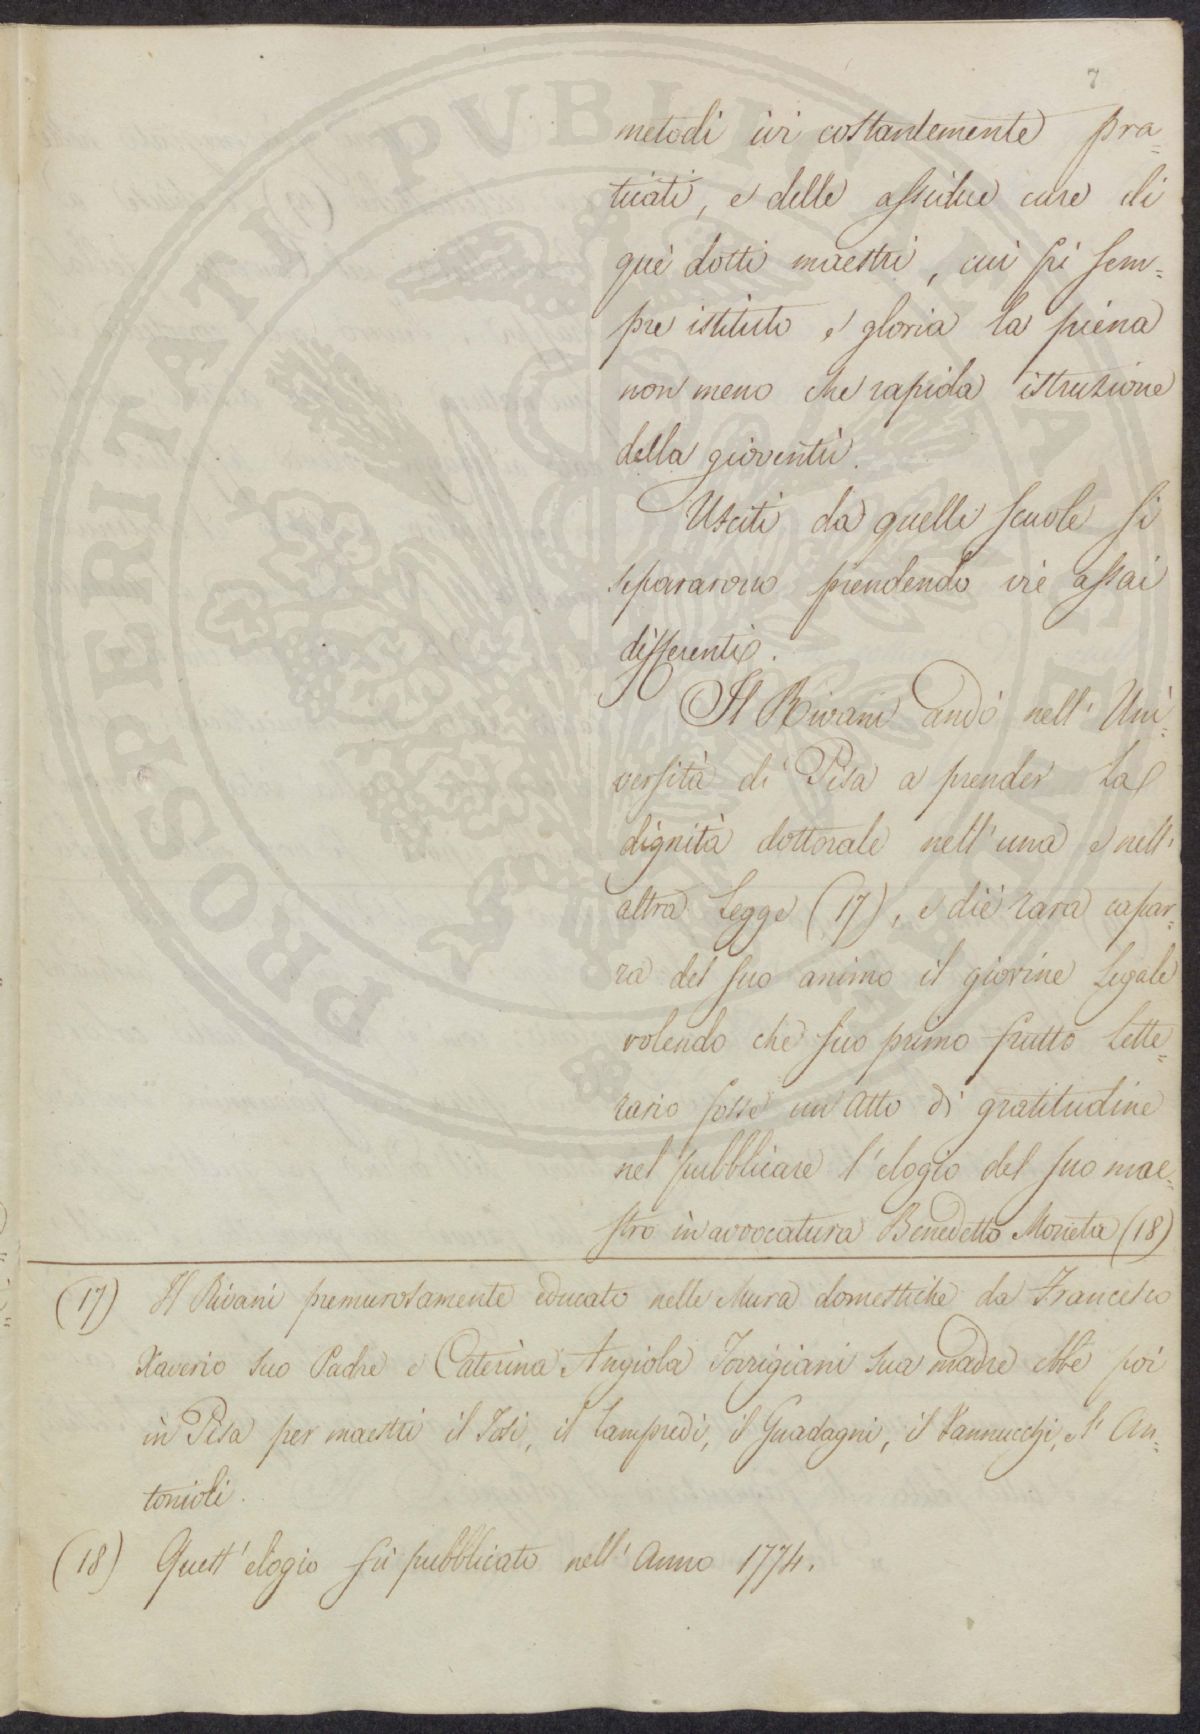 7
metodi ivi costantemente pra=
ticati, e delle assidue cure di
què dotti maestri, cui fù sem=
pre istituto e gloria la piena
non meno che rapida istruzione
della gioventù.
Usciti da quelle scuole si
separarono prendendo vie assai
differenti.
Il Rivani andò nell' Uni=
versità di Pisa a prender la
dignità dottorale nell' una e nell'
altra Legge (17), e diè rara capar=
ra del suo animo il giovine Legale
volendo che suo primo frutto lette=
rario fosse un atto di gratitudine
nel pubblicare l'elogio del suo mae=
stro in avvocatura Benedetto Moneta (18)
(17) Il Rivani premurosamente educato nelle Mura domestiche da Francesco
Xaverio suo Padre e Caterina Angiola Torrigiani sua madre ebbe poi
in Pisa per maestri il Tosi, il Lampredi, il Guadagni, il Vannucchi, e l' An=
tonioli.
(18) Quest' elogio fù pubblicato nell' Anno 1774.
PROSPERITATI PVBLICAE